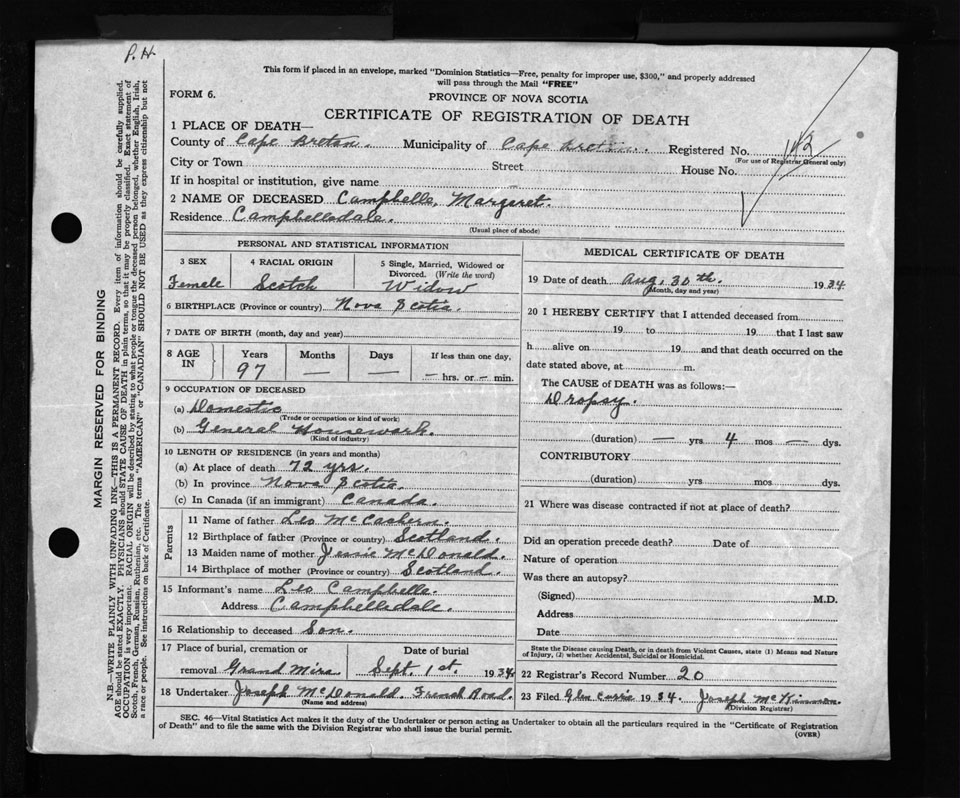 P. H.
This form if placed in an envelope, marked "Dominion Statistics—Free, penalty for improper use, $300," and properly addressed
will pass through the Mail "FREE"
FORM 6.
PROVINCE OF NOVA SCOTIA
CERTIFICATE OF REGISTRATION OF DEATH
1 PLACE OF DEATH—
County of Cape Breton. Municipality of Cape Breton. Registered No. 142
(For use of Registrar General only)
City or Town Street House No.
If in hospital or institution, give name
2 NAME OF DECEASED Campbelle, Margaret.
Residence Campbellsdale.
(Usual place of abode)
PERSONAL AND STATISTICAL INFORMATION
3 SEX 4 RACIAL ORIGIN 5 Single, Married, Widowed or Divorced. (Write the word)
Female Scotch Widow
6 BIRTHPLACE (Province or country) Nova Scotia.
7 DATE OF BIRTH (month, day and year)
8 AGE IN Years Months Days If less than one day,
97 — — — hrs. or — min.
9 OCCUPATION OF DECEASED
(a) Domestic
(Trade or occupation or kind of work)
(b) General Housework.
(Kind of industry)
10 LENGTH OF RESIDENCE (in years and months)
(a) At place of death 72 yrs.
(b) In province Nova Scotia
(c) In Canada (if an immigrant) Canada.
Parents
11 Name of father Leo McCachern.
12 Birthplace of father (Province or country) Scotland.
13 Maiden name of mother Jessie McDonald.
14 Birthplace of mother (Province or country) Scotland.
15 Informant's name Leo Campbelle.
Address Campbellsdale.
16 Relationship to deceased Son.
17 Place of burial, cremation or removal Grand Mira Date of burial Sept. 1st. 1934
18 Undertaker Joseph McDonald. French Road.
(Name and address)
MEDICAL CERTIFICATE OF DEATH
19 Date of death Aug, 30th. 1934
(Month, day and year)
20 I HEREBY CERTIFY that I attended deceased from
19 to 19 that I last saw
h alive on 19 and that death occurred on the
date stated above, at m.
The CAUSE of DEATH was as follows:—
Dropsy.
(duration) — yrs 4 mos — dys.
CONTRIBUTORY
(duration) yrs mos dys.
21 Where was disease contracted if not at place of death?
Did an operation precede death? Date of
Nature of operation
Was there an autopsy?
(Signed) M.D.
Address
Date
State the Disease causing Death, or in death from Violent Causes, state (1) Means and Nature
of Injury, (2) whether Accidental, Suicidal or Homicidal.
22 Registrar's Record No. 20
23 Filed 1934. Joseph McKinnon
(Division Registrar)
SEC. 46—Vital Statistics Act makes it the duty of the Undertaker or person acting as Undertaker to obtain all the particulars required in the "Certificate of Registration
of Death" and to file the same with the Division Registrar who shall issue the burial permit.
(OVER)
MARGIN RESERVED FOR BINDING
N.B.—WRITE PLAINLY WITH UNFADING INK—THIS IS A PERMANENT RECORD. Every item of information should be carefully supplied.
AGE should be stated EXACTLY. PHYSICIANS should STATE CAUSE OF DEATH in plain terms, so that it may be properly classified. Exact statement of
OCCUPATION is very important. RACIAL ORIGIN will be described by stating to what people or tongue the deceased person belonged, whether English, Irish,
Scotch, French, German, Russian, Ruthenian, etc. The terms "AMERICAN" or "CANADIAN" SHOULD NOT BE USED as they express citizenship but not
a race or people. See instructions on back of Certificate.